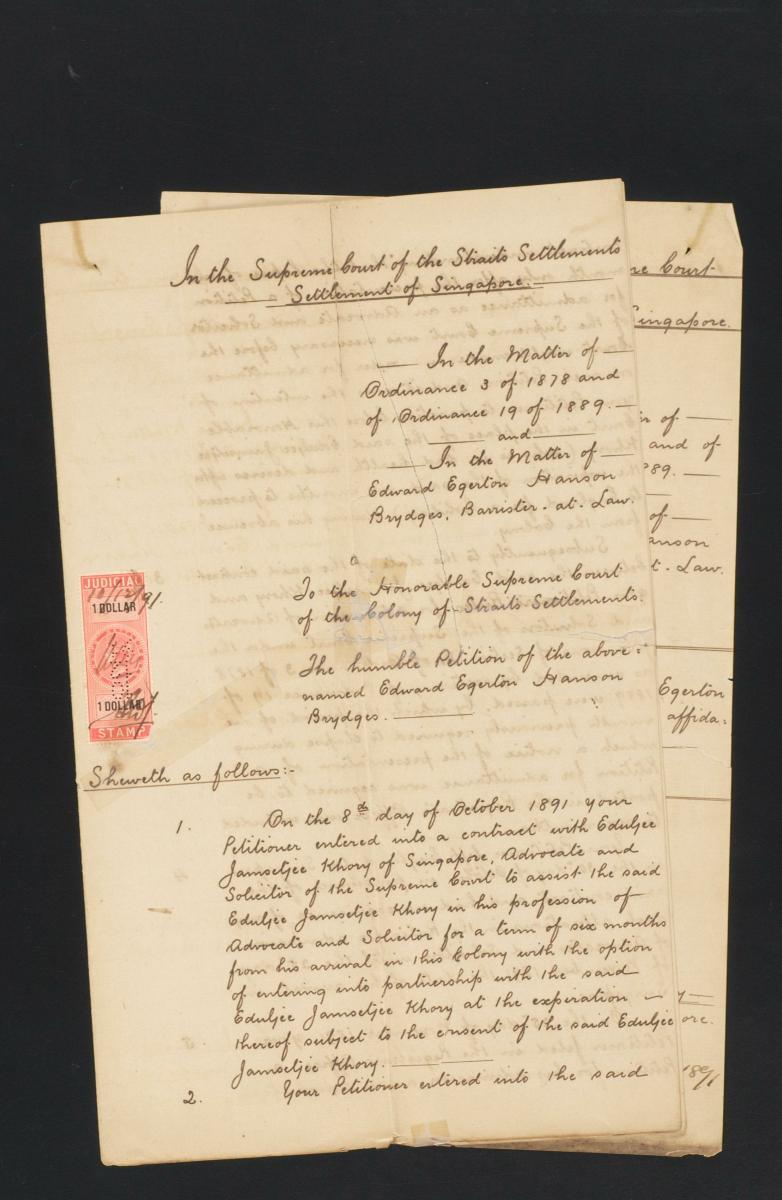 In the Supreme Court of the Straits Settlements
Settlement of Singapore.
In the Matter of
Ordinance 3 of 1878 and
of Ordinance 19 of 1889.
and
In the Matter of
Edward Egerton Hanson
Brydges, Barrister-at-Law.
To the Honorable Supreme Court
of the Colony of Straits Settlements.
The humble Petition of the above-
named Edward Egerton Hanson
Brydges.
JUDICIAL
10/12/91.
1 DOLLAR
1 DOLLAR
STAMP
Sheweth as follows:-
1. On the 8th day of October 1891 your
Petitioner entered into a contract with Eduljee
Jamsetjee Khory of Singapore, Advocate and
Solicitor of the Supreme Court to assist the said
Eduljee Jamsetjee Khory in his profession of
Advocate and Solicitor for a term of six months
from his arrival in this Colony with the option
of entering into partnership with the said
Eduljee Jamsetjee Khory at the experation
thereof subject to the consent of the said Eduljee
Jamsetjee Khory.
2. Your Petitioner entered into the said
Court
Singapore.
of
and of
89.
of
anson
t. Law.
Egerton
affida:
y
ore.
1891